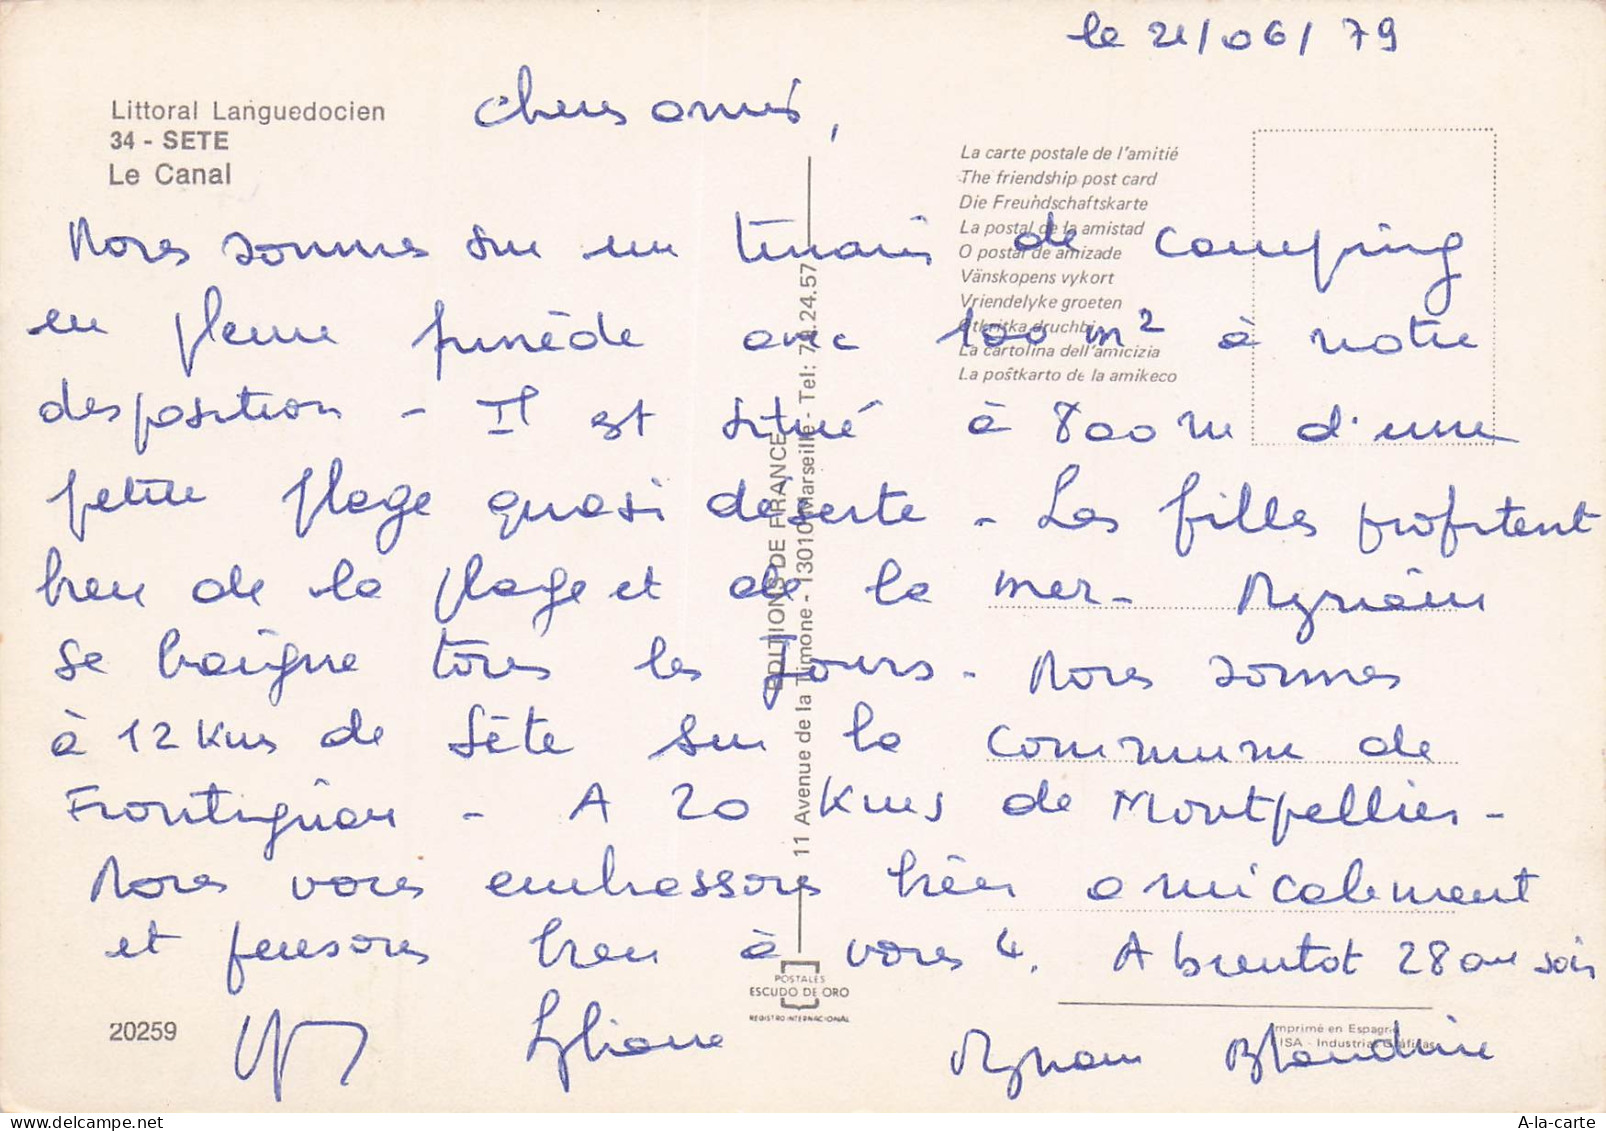 le 21/06/79
Littoral Languedocien
34 - SETE
Le Canal
Chers amis,
La carte postale de l'amitié
The friendship post card
Die Freundschaftskarte
La postal de la amistad
O postal de amizade
Vänskopens vykort
Vriendelyke groeten
Otkritka druchbi
La cartolina dell'amicizia
La poŝtkarto de la amikeco
Nous sommes sur un terrain de camping
en pleine pinède avec 100 m² à notre
disposition - Il est situé à 800 m d'une
petite plage quasi déserte - Les filles profitent
bien de la plage et de la mer - Myriam
se baigne tous les jours - Nous sommes
à 12 Kms de Sète sur la commune de
Frontignan - A 20 Kms de Montpellier -
Nous vous embrassons bien amicalement
et pensons bien à vous 4. A bientot 28 au soir
Lyliane Myriam Blandine
EDITIONS DE FRANCE
11 Avenue de la Timone - 13010 Marseille - Tel: 79.24.57
POSTALES
ESCUDO DE ORO
REGISTRO INTERNACIONAL
20259
Imprimé en Espagne
FISA - Industrias Gráficas
delcampe.net
A-la-carte